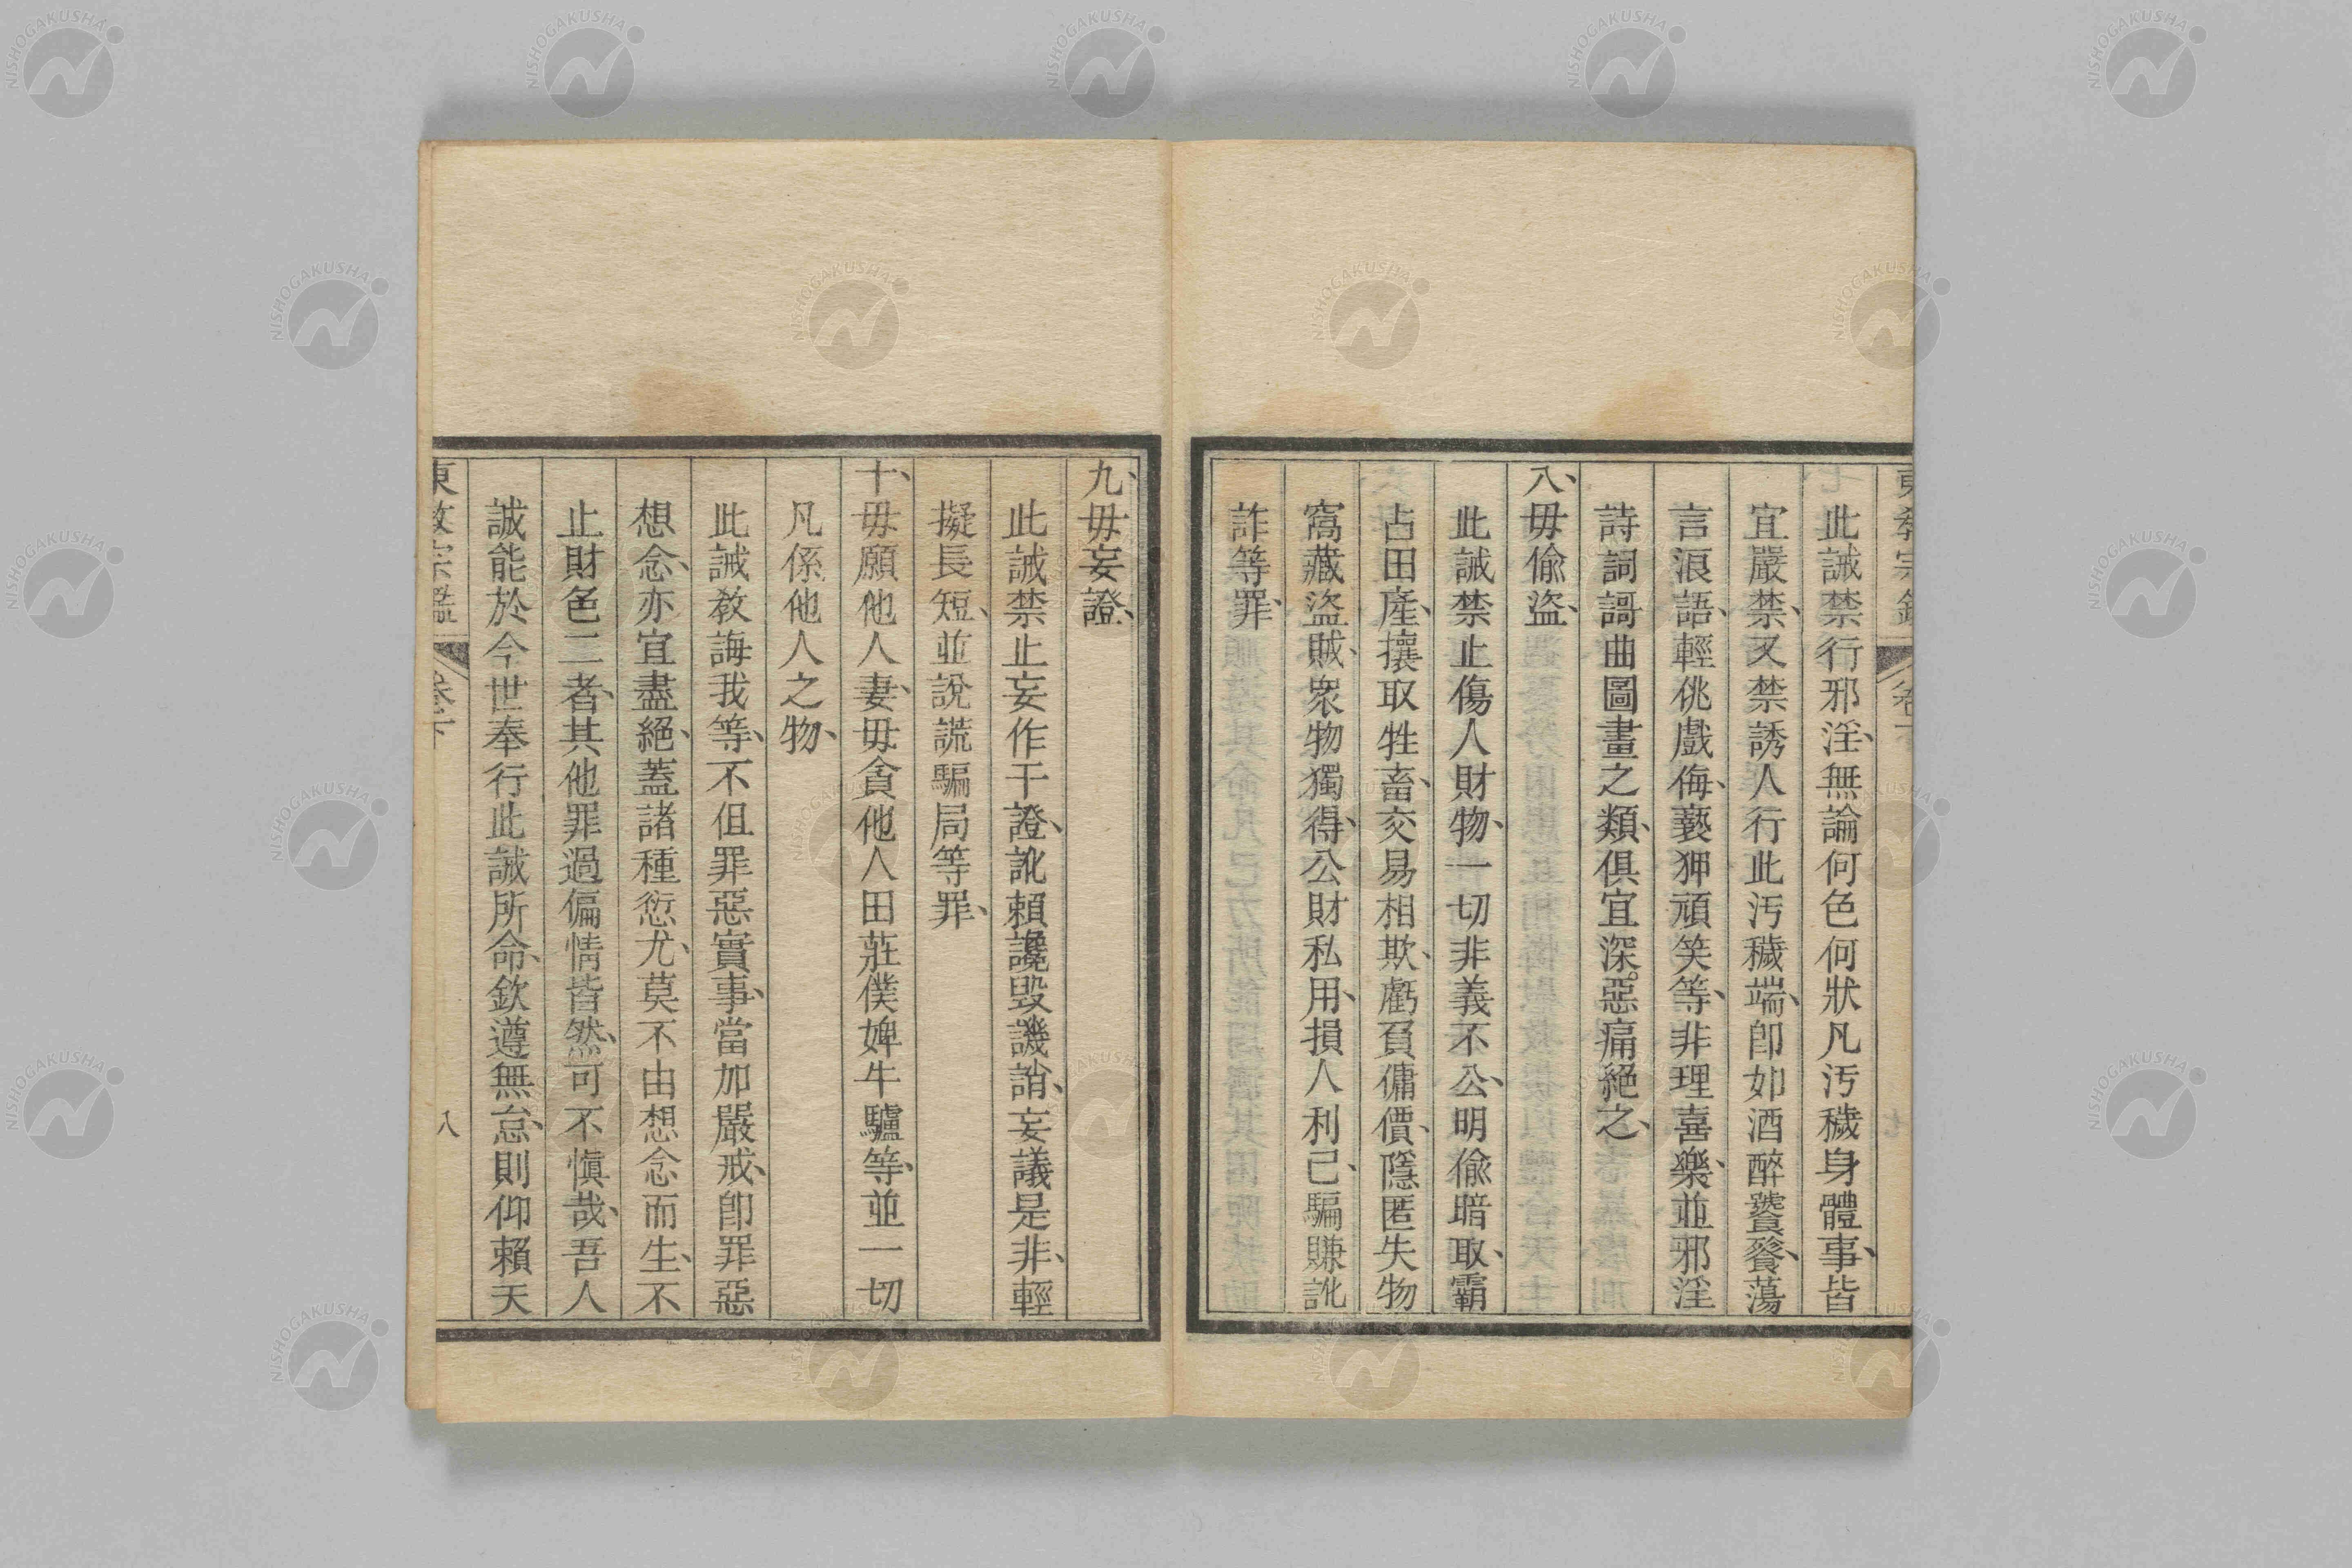 此誡禁行邪淫、無論何色何狀凡汚穢身體事、皆
宜嚴禁、又禁誘人行此汚穢端、卽如酒醉饕餮、蕩
言浪語、輕佻戲侮、褻狎頑笑等、非理喜樂、並邪淫
詩詞謌曲圖畫之類、俱宜深惡痛絕之、
八、毋偸盜、
此誡禁止傷人財物、一切非義不公、明偸暗取、霸
占田產、攘取牲畜、交易相欺、虧負傭價、隱匿失物
窩藏盜賊、衆物獨得、公財私用、損人利己、騙賺訛
詐等罪、
九、毋妄證、
此誡禁止妄作干證、訛賴讒毀譏誚、妄議是非、輕
擬長短、並說謊騙局等罪、
十、毋願他人妻、毋貪他人田莊僕婢牛驢等、並一切
凡係他人之物、
此誡敎誨我等、不但罪惡實事、當加嚴戒、卽罪惡
想念、亦宜盡絕、蓋諸種愆尤、莫不由想念而生、不
止財色二者、其他罪過偏情皆然、可不愼哉、吾人
誠能於今世奉行此誡所命、欽遵無怠、則仰賴天
東敎宗鑑 卷下 八
NISHOGAKUSHA